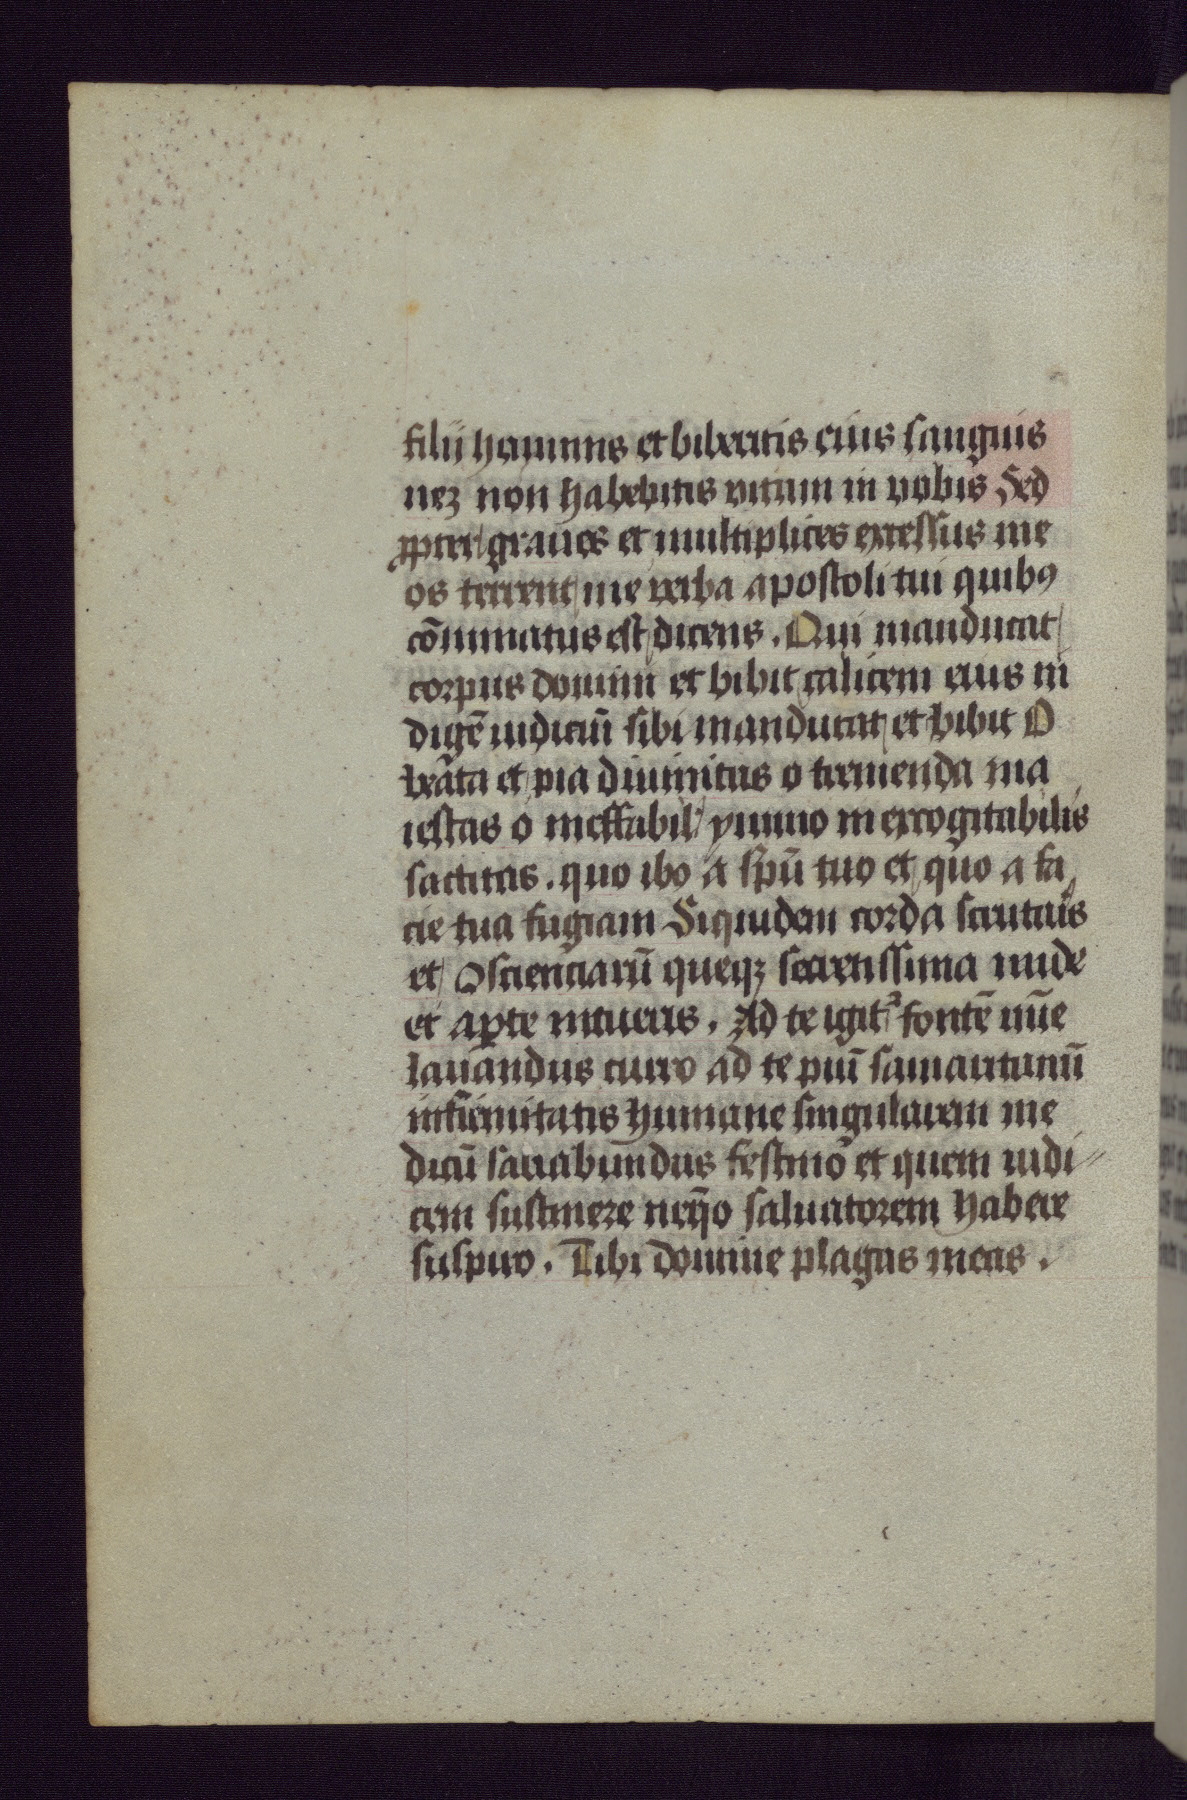 filii hominis et biberitis eius sanguis
nez non habebitis vitam in vobis Sed
ꝓpter graues et multiplices excessus me
os terrent me verba apostoli tui quibꝯ
cōminatus est dicens . Qui manducat
corpus domini et bibit calicem eius in
digē iudiciū sibi manducat et bibit O
beāta et pia diuinitas o tremenda ma
iestas o ineffabil' ymmo in excogitabilis
sactitas . quo ibo a spū tuo et quo a fa
cie tua fugiam Siquidem corda scrutaris
et ꝯscienciarū queqꝫ secretissima nude
et aꝑte intueris . Ad te igit² fontē nūe
lauandus curro ad te piū samaritanū
infirmitatis humane singularem me
dicū sanabundus festino et quem iudi
cem sustinere neq̄o saluatorem habere
suspiro . Tibi domine plagas meas .